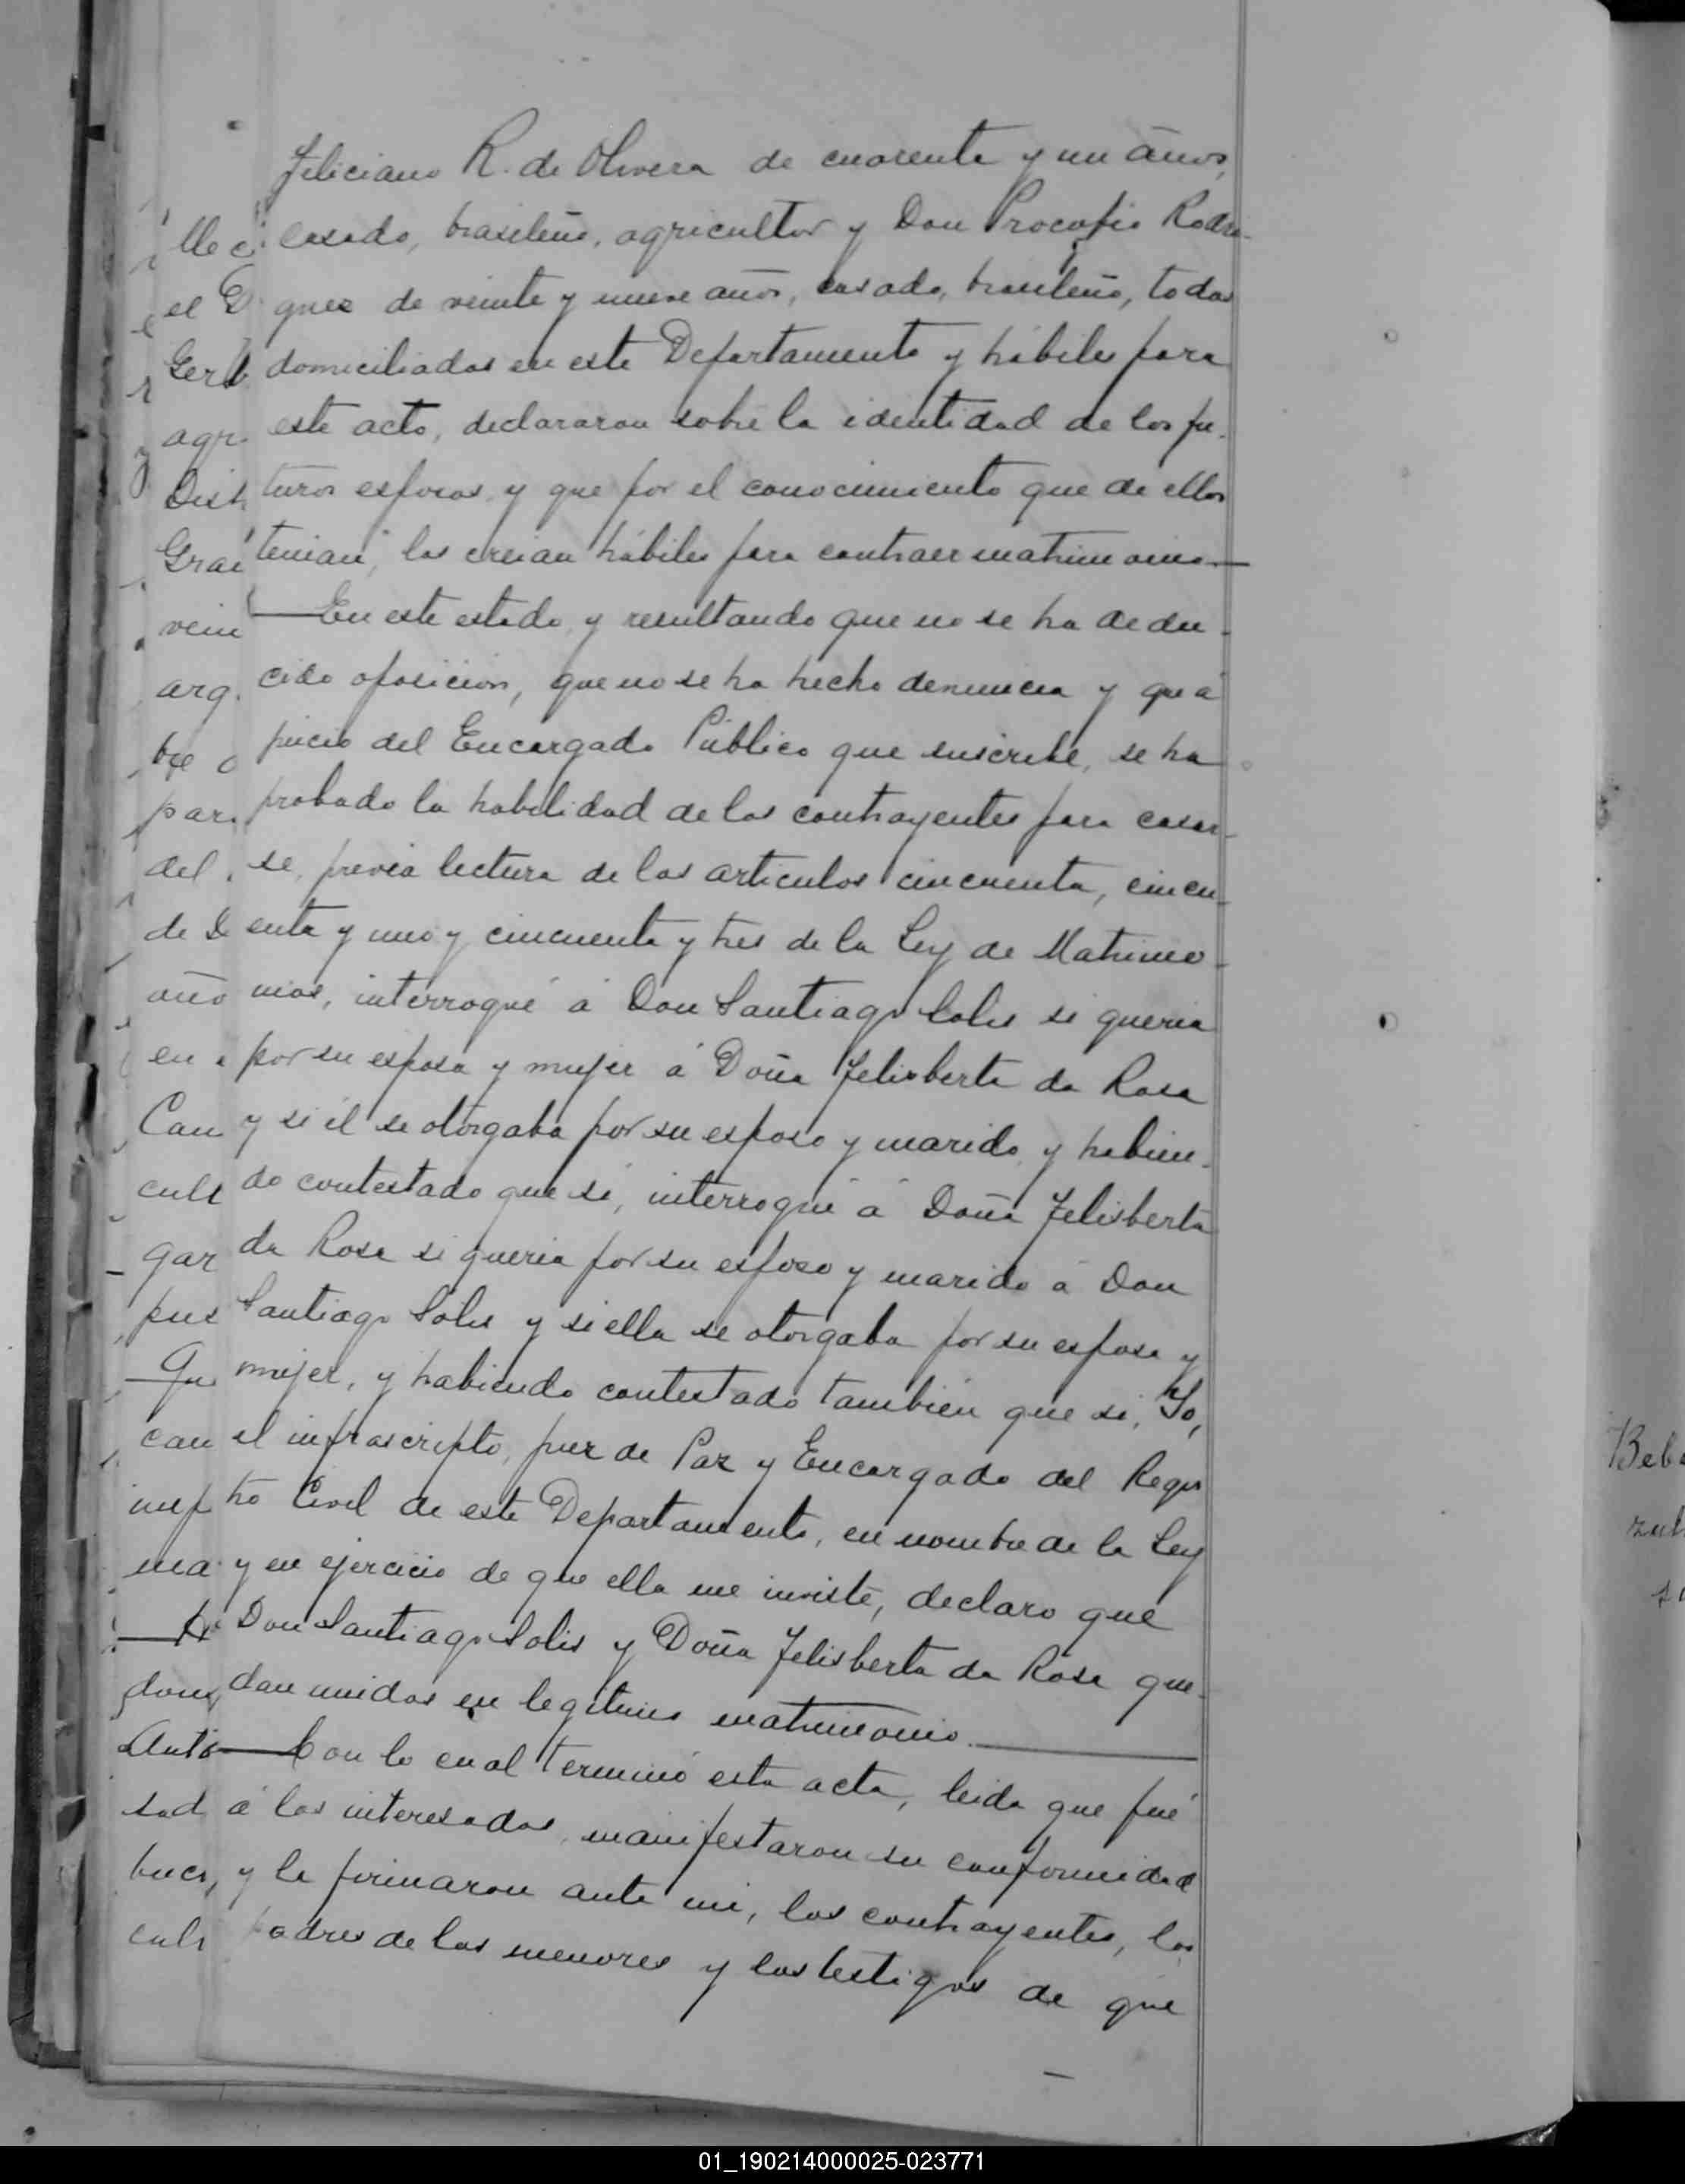 Feliciano R. de Olivera de cuarenta y un años,
casado, brasileño, agricultor y Don Procopio Rodri-
guez de veinte y nueve años, casado, brasileño, todos
domiciliados en este Departamento y hábiles para
este acto, declararon sobre la identidad de los fu-
turos esposos, y que por el conocimiento que de ellos
tenian, los creian hábiles para contraer matrimonio.—
—En este estado, y resultando que no se ha dedu-
cido oposicion, que no se ha hecho denuncia y que á
juicio del Encargado Público que suscribe, se ha
probado la habilidad de los contrayentes para casar-
se, prévia lectura de los articulos cincuenta, cincu-
enta y uno y cincuenta y tres de la Ley de Matrimo-
nios, interrogué á Don Santiago Solis si queria
por su esposa y mujer á Doña Felisberta da Rosa
y si él se otorgaba por su esposo y marido, y habien-
do contestado que si, interrogué á Doña Felisberta
da Rosa si queria por su esposo y marido á Don
Santiago Solis y si ella se otorgaba por su esposa y
mujer, y habiendo contestado también que si, Yo,
el infrascripto, juez de Paz y Encargado del Regis
tro Civil de este Departamento, en nombre de la Ley
y en ejercicio de que ella me inviste, declaro que
Don Santiago Solis y Doña Felisberta da Rosa que-
dan unidos en legitimo matrimonio.—
—Con lo cual terminó esta acta, leida que fué
á los interesados, manifestaron su conformidad
y la firmaron ante mi, los contrayentes, los
padres de los menores y los testigos de que
el D
Gerb
agr
Dist
Grai
vein
arg.
bre
par
del
de D
año
en
Can
cult
gar
pues
can
imp
ma
dom
Anto
sad
cult
01_190214000025-023771